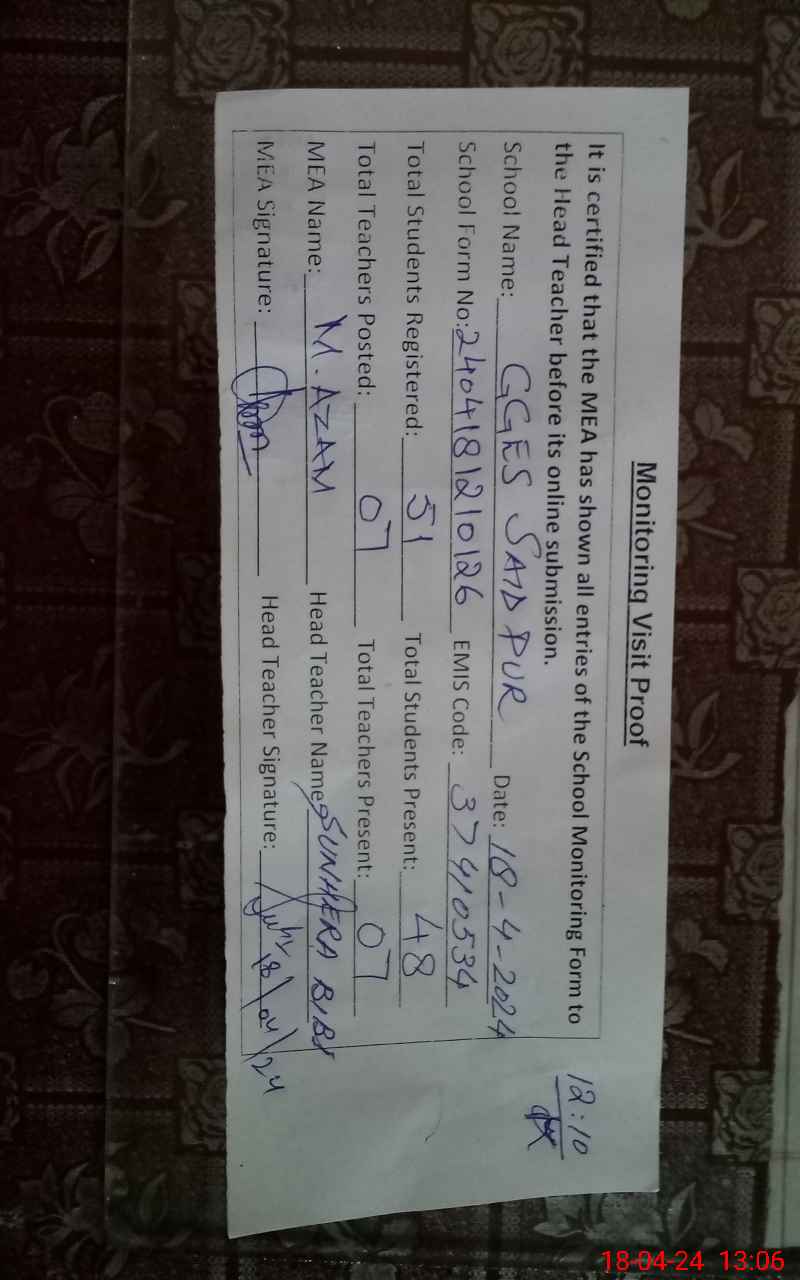 Monitoring Visit Proof
It is certified that the MEA has shown all entries of the School Monitoring Form to
the Head Teacher before its online submission.
12:10
School Name: GGES SAID PUR Date: 18-4-2024
School Form No: 2404181210126 EMIS Code: 37410534
Total Students Registered: 51 Total Students Present: 48
Total Teachers Posted: 07 Total Teachers Present: 07
MEA Name: M. AZAM Head Teacher Name: SUNHERA BIBI
MEA Signature: Head Teacher Signature: 18/04/24
18-04-24 13:06